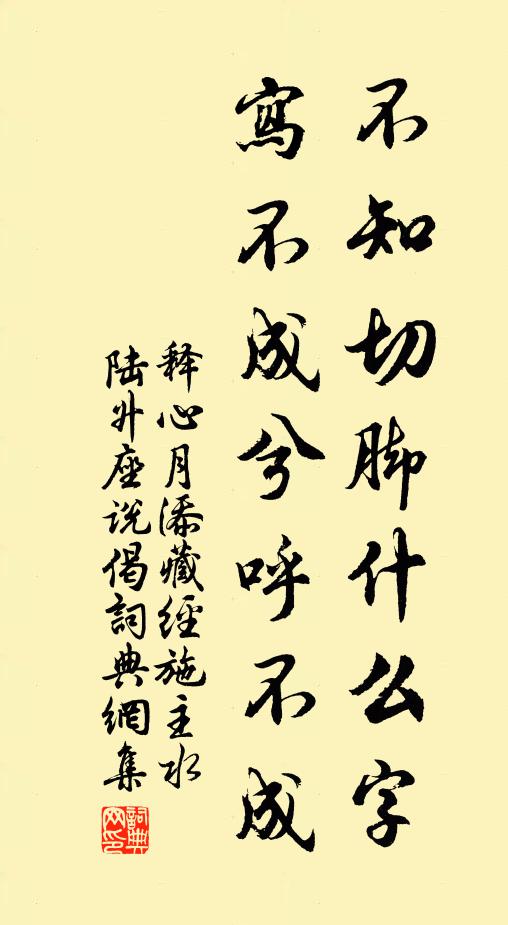 不知切脚什么字
寫不成兮呼不成
释心月添藏經施主水
陆升座说偈詞典網集
詞典
网印